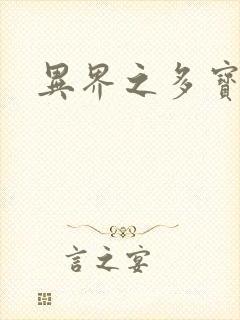 異界之多寶
言之宴